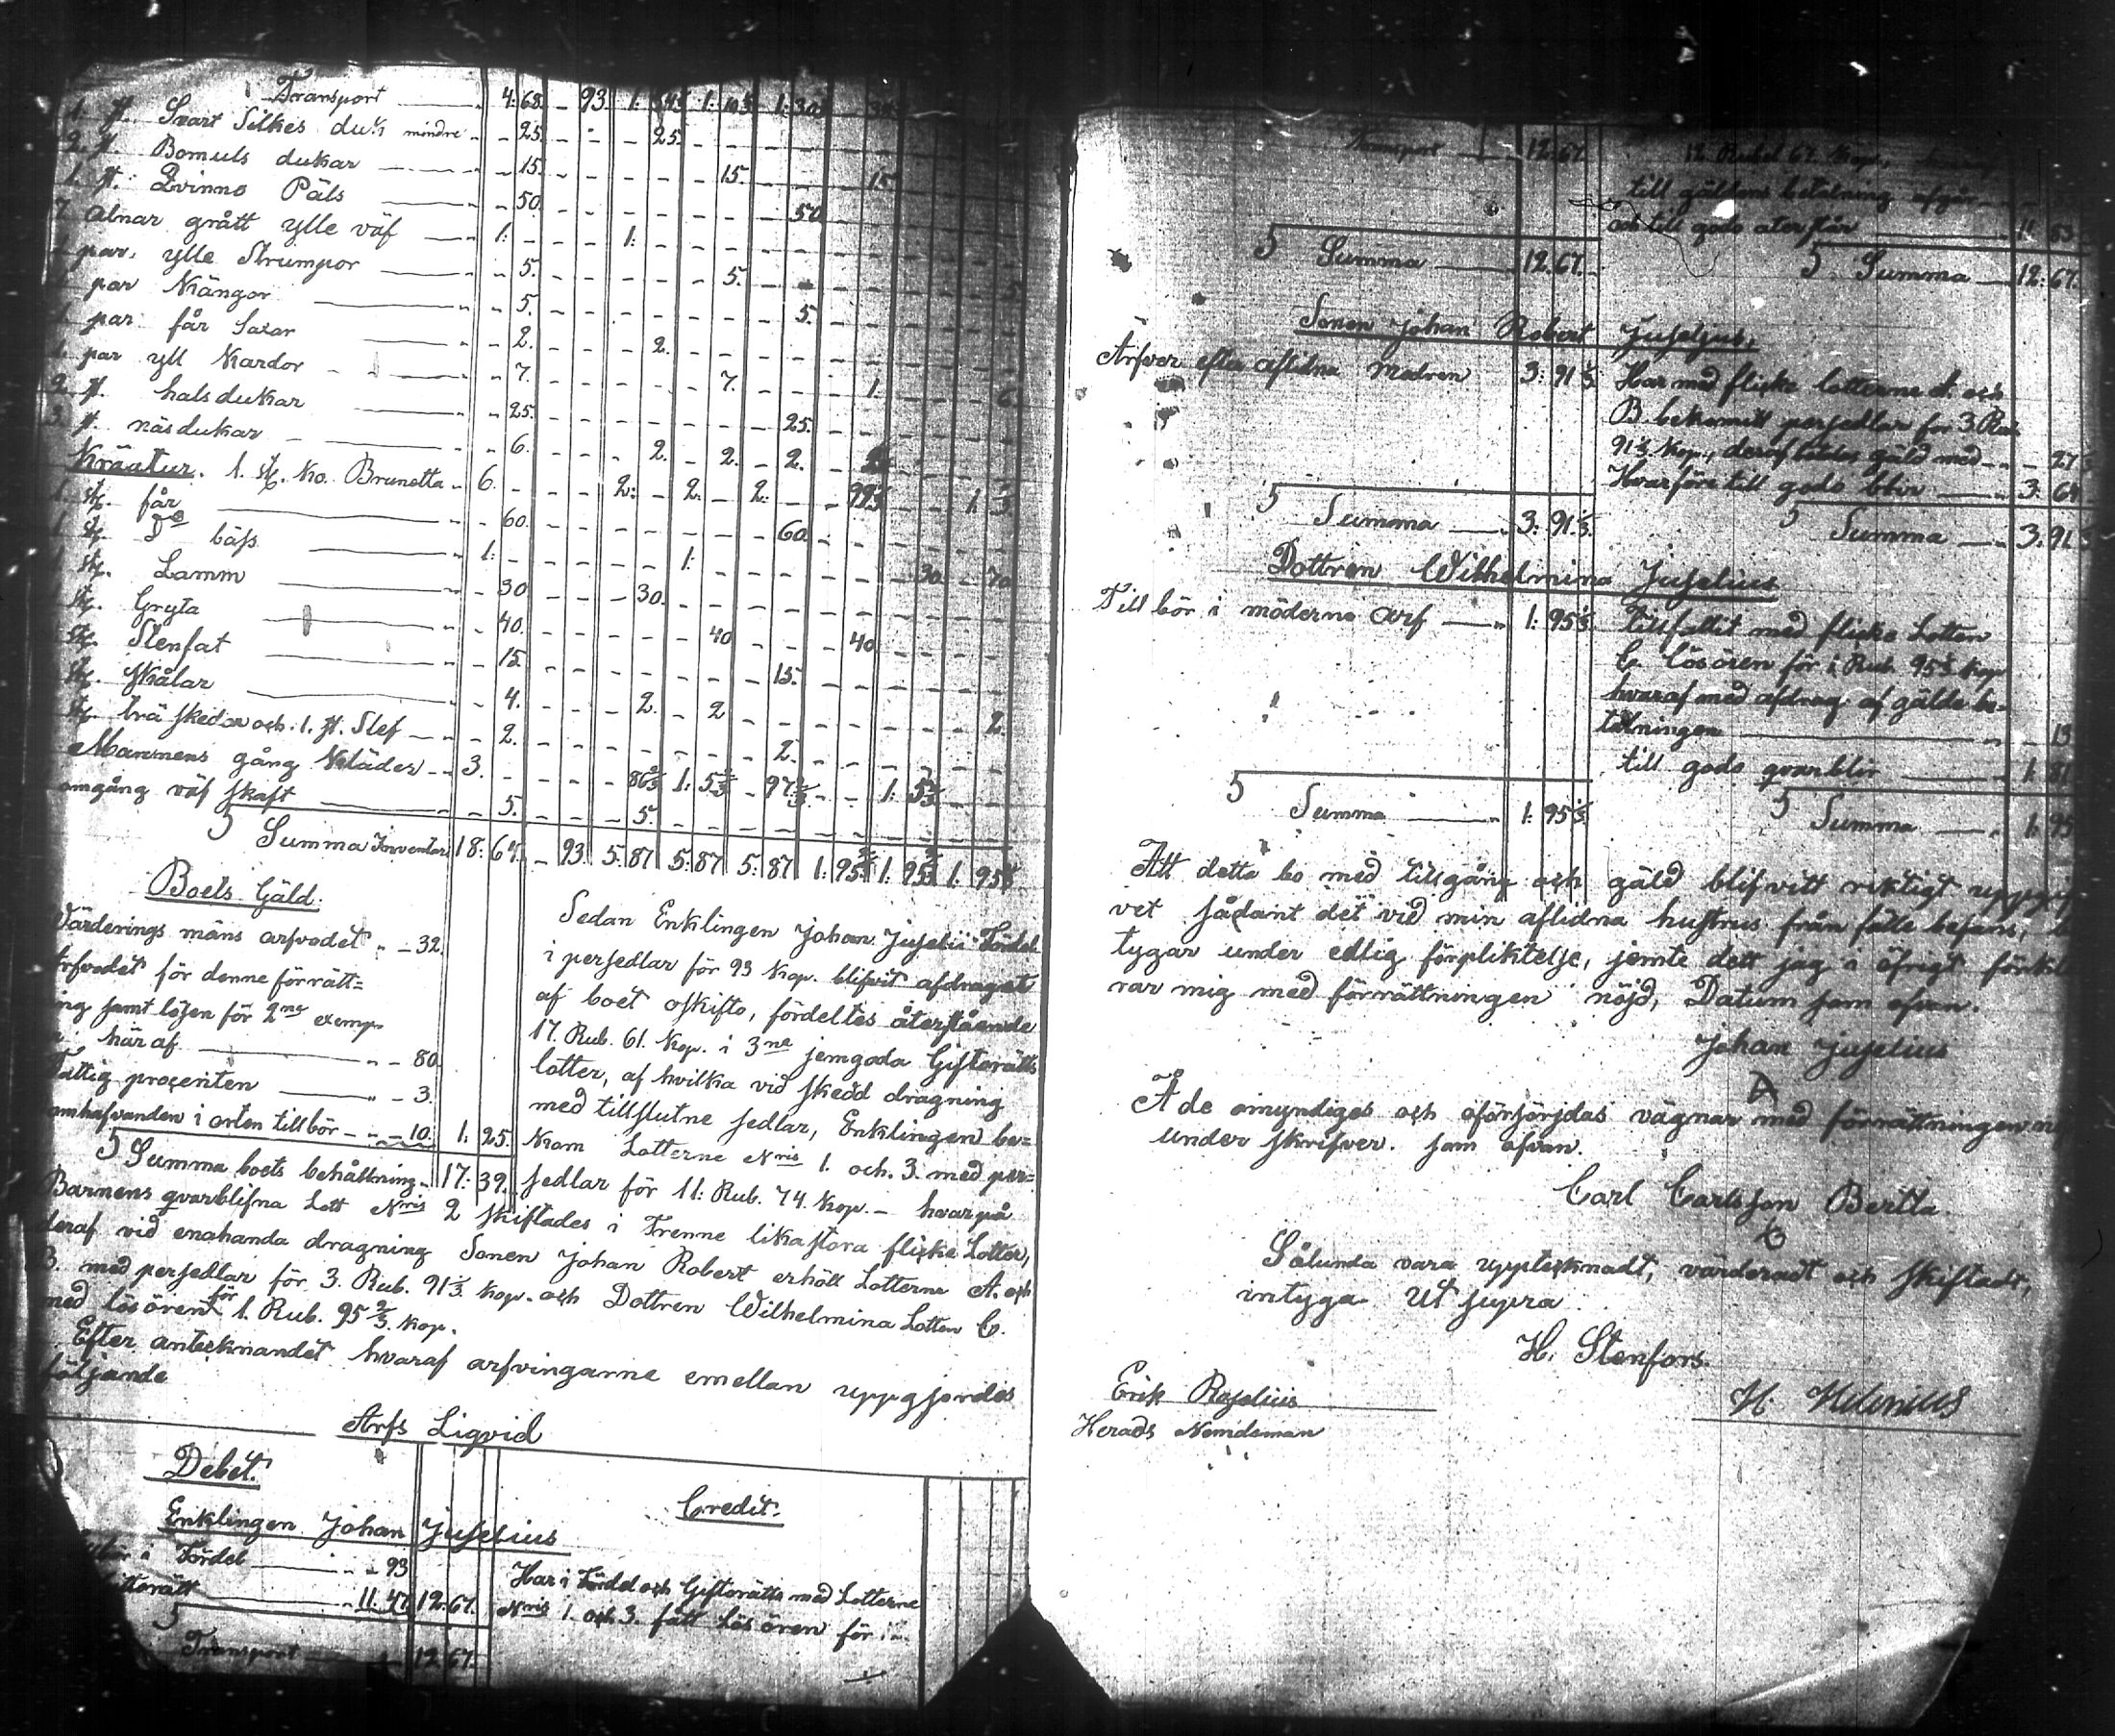 Transport 4: 68. – 93. 1: 1: 1: 30
1. st. Svart Silkes duk mindre – 25. 25.
2. st. Bomuls dukar – 15. 15. 15
1. st. Qvinno Päls – 50. 50
7 alnar grått ylle väf 1: 1:
par. ylle Strumpor 5. 5. 5.
par Kängor 5. 5.
1. par får Saxar 2. 2.
1. par yll Kardor 7. 7. 1 6.
2. st. halsdukar 25. 25.
3. st. näsdukar 6. 2. 2. 2.
Kräatur. 1. st. Ko. Brunetta 6. 2: 2: 2:
1. st. får 60. 60.
1 st. Do bäss 1: 1: 30 70
1 st. Lamm 30 30.
st. Gryta 40. 40 40.
st. Stenfat 15. 15.
st. Skålar 4. 2. 2 2.
st. trä skedar och 1. st. Slef 2. 2.
Mannens gång Kläder 3. 86 2/3 1: 5 2/3 97 2/3 1: 5 2/3
omgång väf skaft 5. 5.
Summa Inventar 18: 64. – 93. 5: 87 5: 87 5: 87 1: 95 2/3 1: 95 2/3 1: 95
Boets Gäld.
Värderings mäns arfvodet – 32.
Arfvodet för denne förrätt=
ing samt lösen för 2ne exemp
häraf – 80.
Fattig procenten – 3.
omhafvanden i orten tillbör – 10. 1: 25.
Summa boets behållning 17: 39.
Sedan Enklingen Johan Juselii Fördel
i persedlar för 93 Kop. blifvit afdraget
af boet oskifto, fördeltes återstående
17. Rub. 61. Kop. i 3ne jemgoda Giftorätts
lotter, af hvilka vid skedd dragning
med tillslutne sedlar, Enklingen be=
kom Lotterne Nris 1. och. 3. med per=
sedlar för 11: Rub. 74. Kop. – hvarpå
Barnens qvarblifna Lott Nris 2 skiftades i Trenne lika stora fliske Lotter,
deraf vid enahanda dragning Sonen Johan Robert erhöll Lotterne A. och
B. med persedlar för 3. Rub. 91 1/3 Kop. och Dottren Wilhelmina Lotten C.
med lösören för 1. Rub. 95 2/3 Kop.
Efter antecknandet hvaraf arfvingarne emellan uppgjordes
följande
Arfs Liqvid
Debet. Credit.
Enklingen Johan Juselius
i Fördel – 93
11. 74 12: 67.
Transport 12 67.
Har i Fördel och Giftorätts med Lotterne
Nris 1. och 3. fått Lösören för
Transport 12: 67.
Summa 12: 67.
12 Rubel 67 Kop.,
till gäldens betalning afgår
och till godo återstår 11: 53
Summa 12: 67.
Sonen Johan Robert Juselius.
Arfver efter aflidna modren 3: 91 1/3
Summa 3: 91 1/3
Har med fliske lotterne A. och
B. bekommit persedlar för 3 Rub
91 1/3 Kop., deraf gäld med – 27
Hvarföre till godo blir 3: 64
Summa 3: 91
Dottren Wilhelmina Juselius
Tillbör i möderne arf 1: 95 2/3
Summa 1: 95 2/3
Tillfallit med fliske Lotten
C. lösören för 1 Rub. 95 2/3 Kop
hvaraf med afdrag af gälds be-
talningen 13
till godo qvarblir 1: 81
Summa 1: 95
Att detta bo med tillgång och gäld blifvitt riktigt uppgif
vet sådant det vid min aflidna hustrus från fälle befans, be
tygar under edlig förpliktelse, jemte dett jag i öfrigt förkl
rar mig med förrättningen nöjd, Datum som ofvan.
Johan Juselius
Å de omyndiges och oförsörjdas vägnar med förrättningen nöj
under skrifver. som ofvan.
Carl Carlsson Bertla
Sålunda vara upptecknadt, värderadt och skiftadt,
intyga Ut supra
H. Stenfors.
Erik Roselius
Herads Nemdeman
H. Helenius